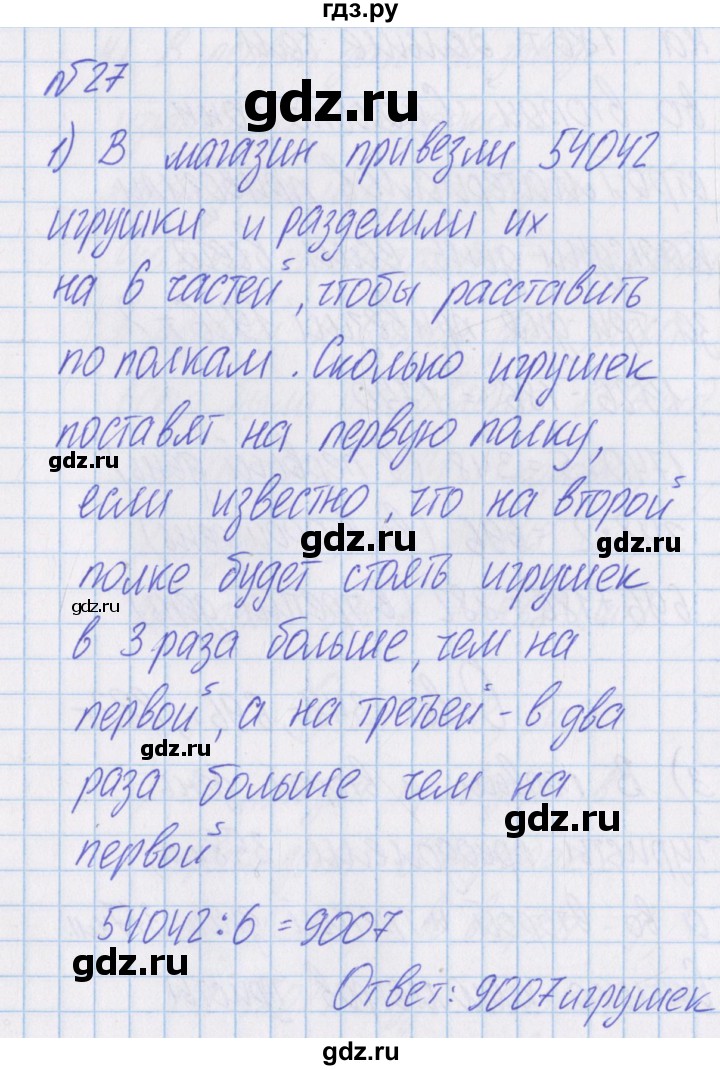 гдз.ру
№27
gdz.ru
1) В магазин привезли 54042
игрушки и разделили их
на 6 частей, чтобы расставить
по полкам. Сколько игрушек
поставят на первую полку,
gdz.ru
если известно, что на второй
gdz.ru
gdz.ru
полке будет стоять игрушек
gdz.ru
в 3 раза больше, чем на
первой, а на третьей - в два
gdz.ru
раза больше чем на
gdz.ru
первой
54042:6=9007
gdz.ru
Ответ: 9007 игрушек
gdz.ru
gdz.ru